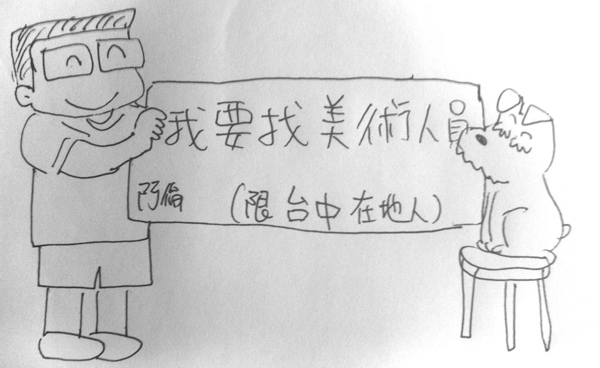 我要找美術人員
阿倫 (限台中在地人)